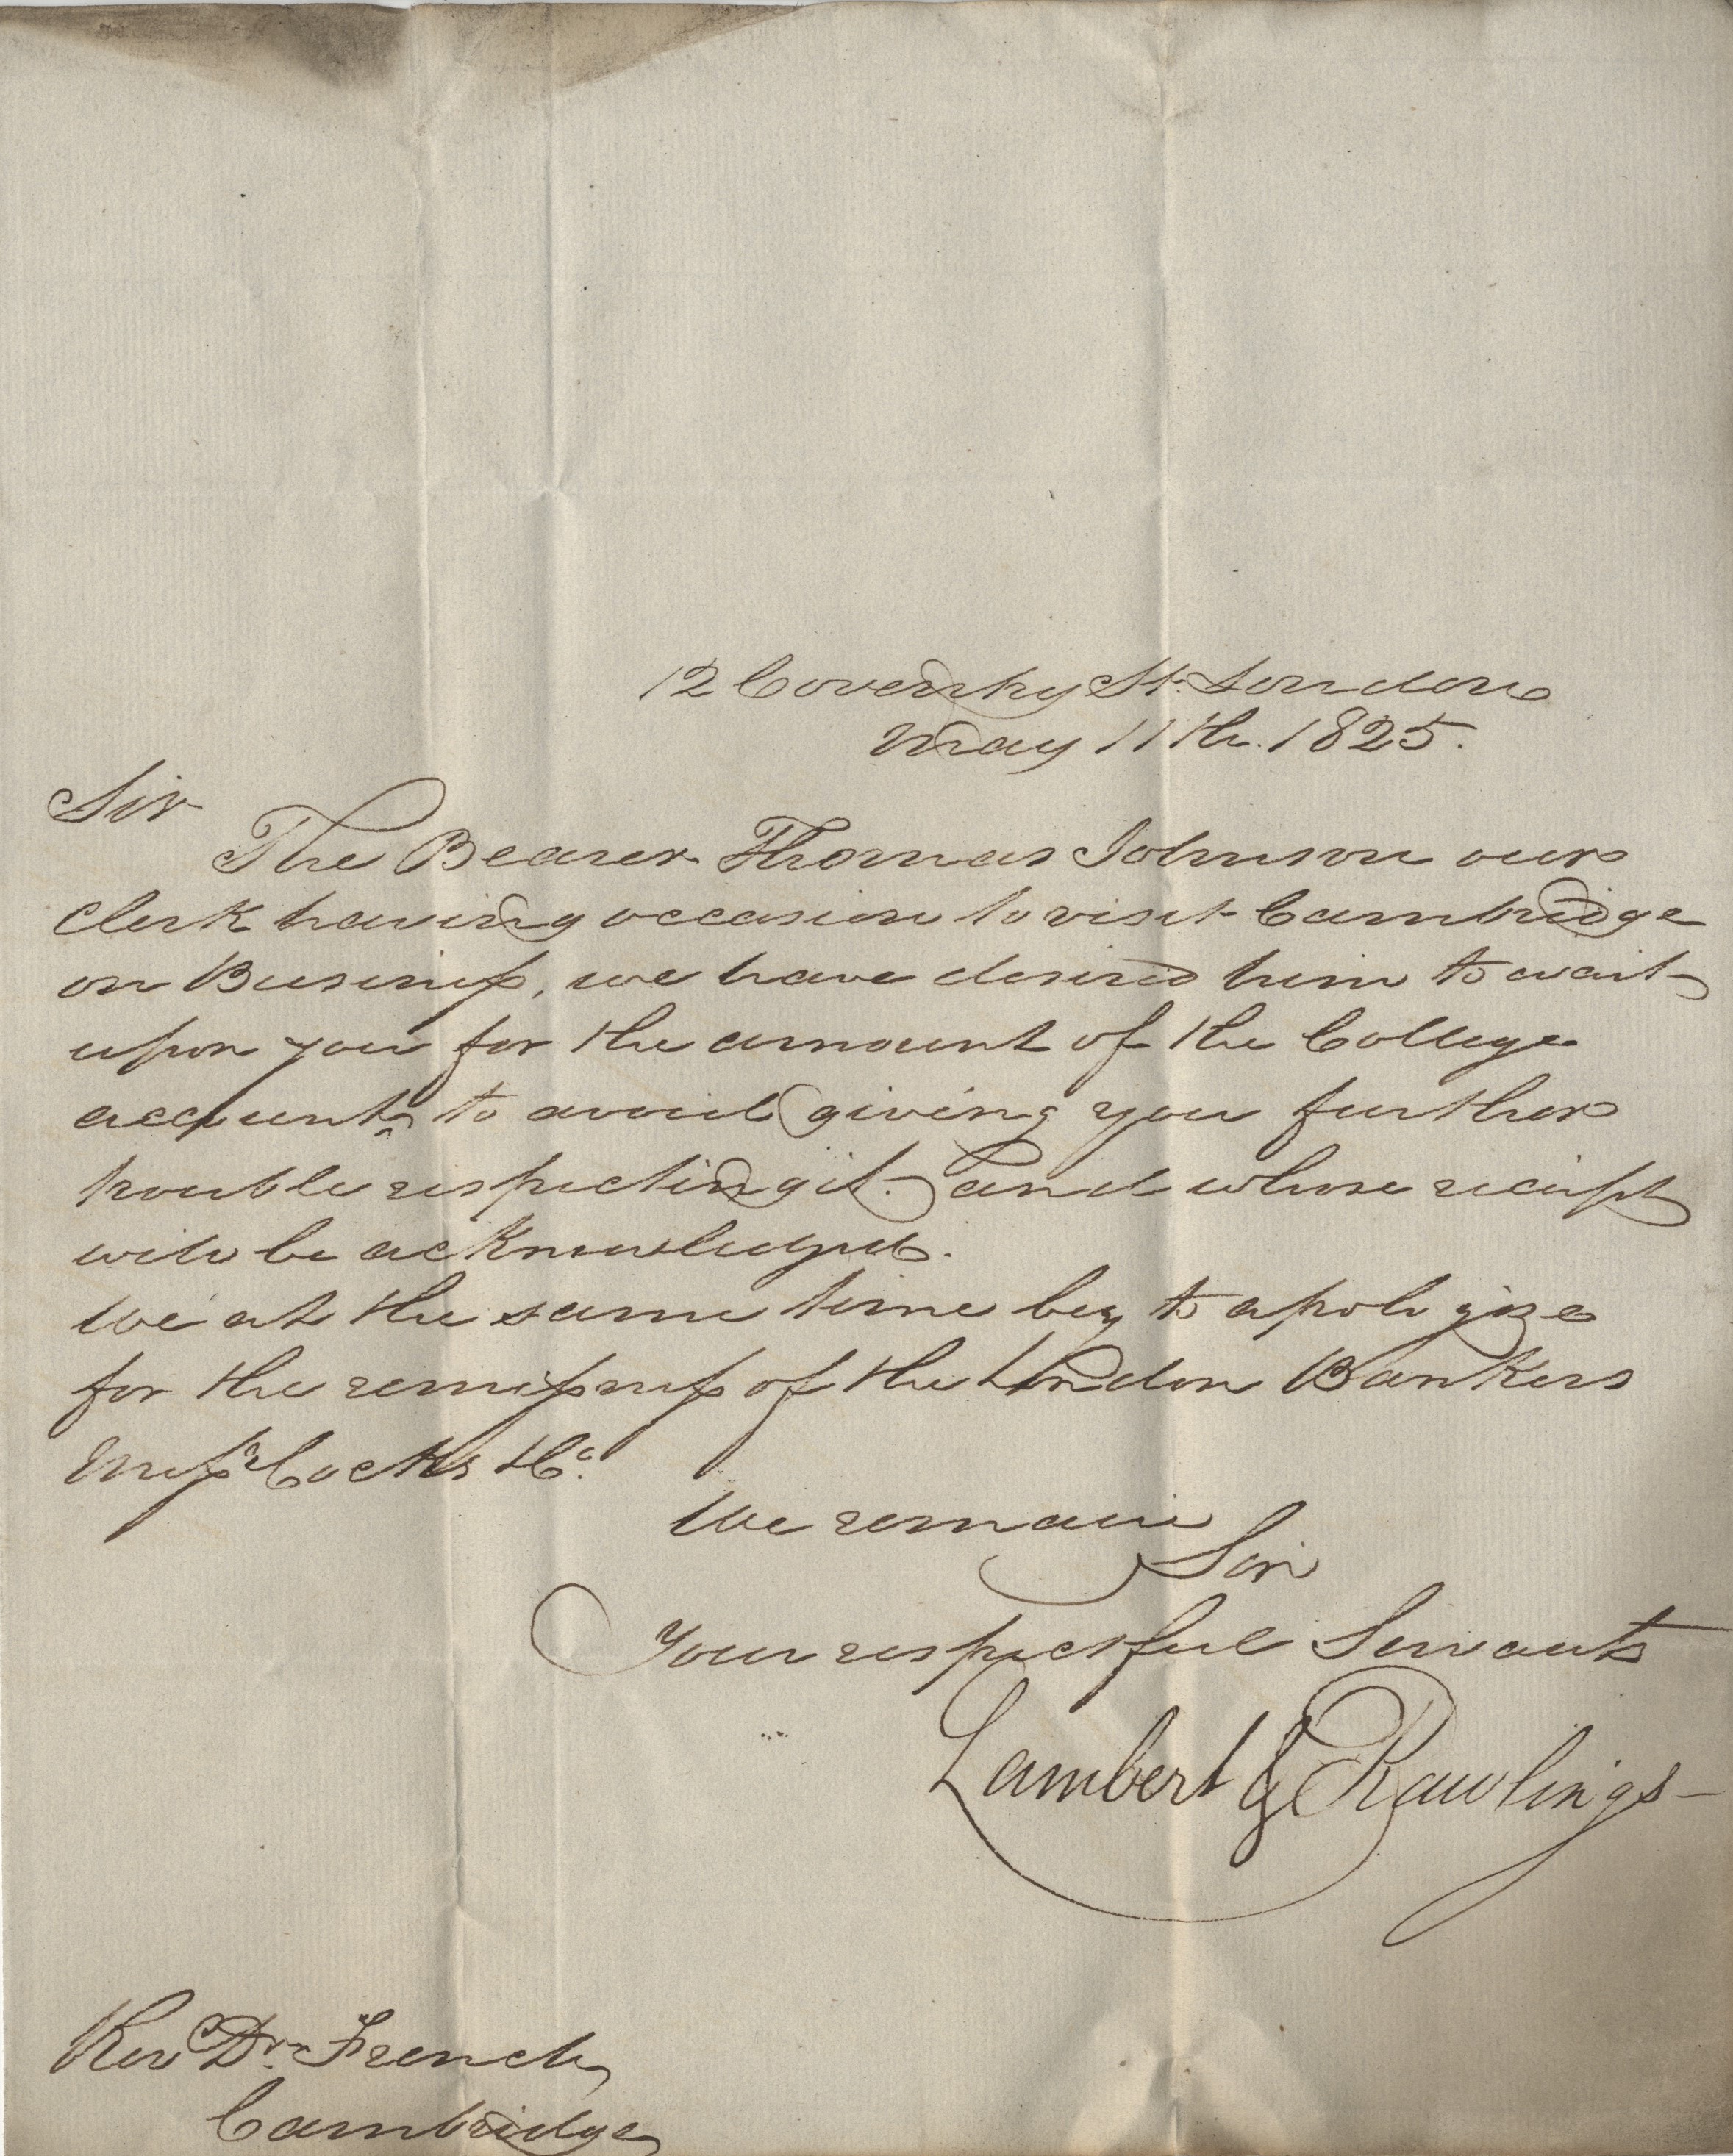 12 Coventry St. London
May 11th. 1825.
Sir
The Bearer Thomas Johnson our
Clerk having occasion to visit Cambridge
on Business, we have desired him to wait
upon you for the amount of the College
account, to avoid giving you further
trouble respecting it. and whose reciept
will be acknowledged.
We at the same time beg to apologize
for the remissness of the London Bankers
Messrs Cocks & Co.
We remain
Sir
Your respectful Servants
Lambert & Rawlings
Revd Dr. French
Cambridge